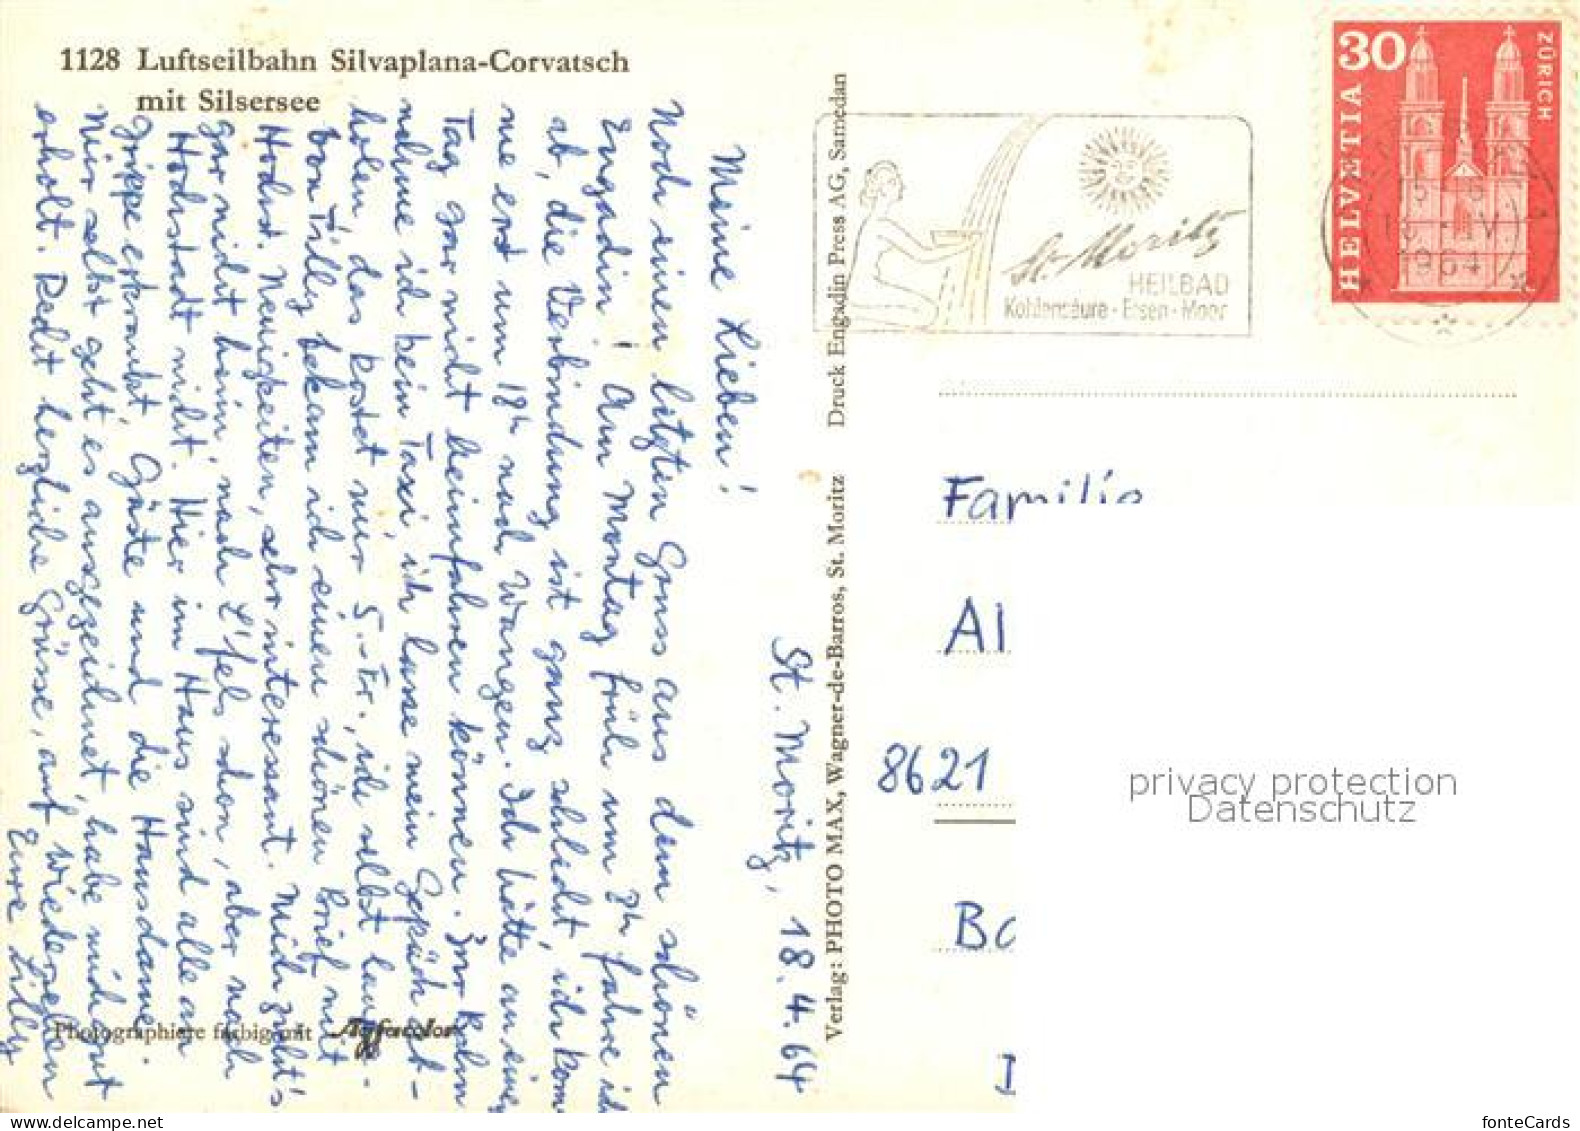 1128 Luftseilbahn Silvaplana-Corvatsch
mit Silsersee
St. Moritz, 18.4.64
Meine Lieben!
Noch einen letzten Gruss aus dem schönen
Engadin! Am Montag früh um 8h fahre ich
ab, die Verbindung ist ganz schlecht, ich kom
me erst um 18h nach Wangen. Ich hätte an einem
Tag gar nicht heimfahren können. Zur Bahn
nehme ich kein Taxi, ich lasse mein Gepäck ab-
holen, das kostet nur 5.- Fr., ich selbst laufe.-
Von Tilly bekam ich einen schönen Brief mit
Höchst. Neuigkeiten, sehr interessant. Mich zieht's
gar nicht heim, nach L'fels schon, aber nach
Höchstadt nicht. Hier im Haus sind alle an
Grippe erkrankt, Gäste und die Hausdame.
Mir selbst geht es ausgezeichnet, habe mich gut
erholt. Recht herzliche Grüsse, auf Wiedersehen
Eure Lilly
Photographiere farbig mit Agfacolor
Verlag: PHOTO MAX, Wagner-de-Barros, St. Moritz
Druck Engadin Press AG, Samedan
St. Moritz
HEILBAD
Kohlensäure - Eisen - Moor
30
HELVETIA
ZÜRICH
1964
Familie
Al
8621
Ba
privacy protection
Datenschutz
fonteCards